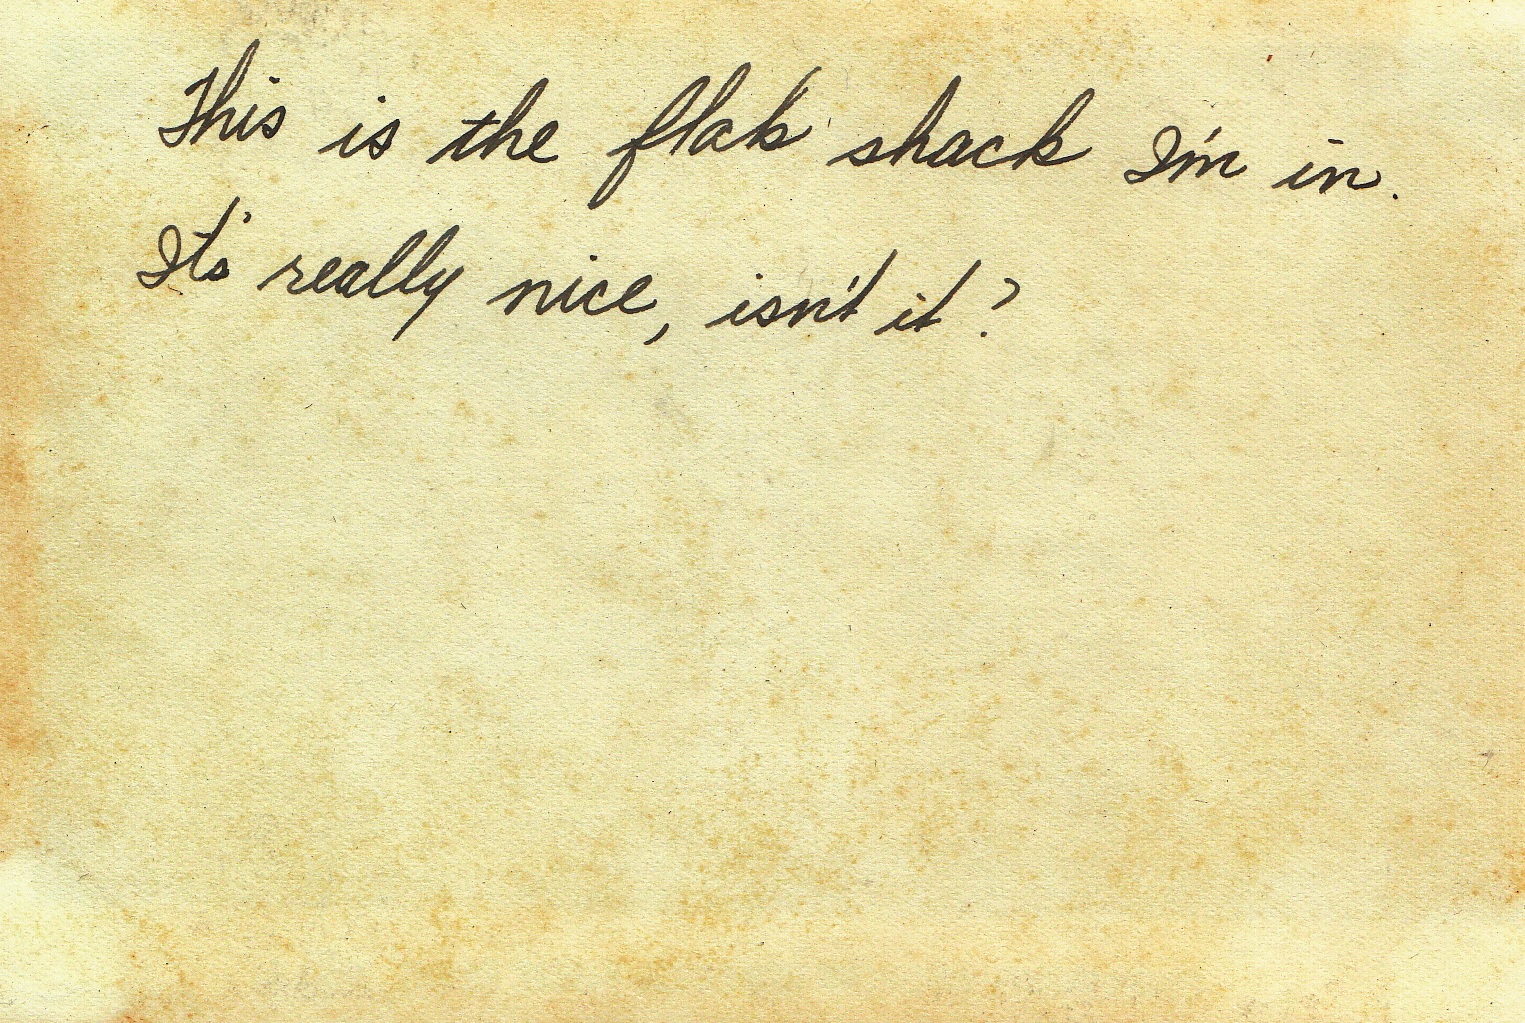 This is the flak shack I'm in.
It's really nice, isn't it?